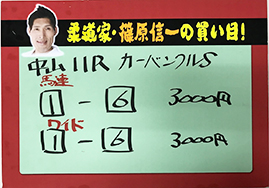 柔道家・篠原信一の買い目!
中山11R カーバンクルS
馬連
1 - 6 3000円
ワイド
1 - 6 3000円